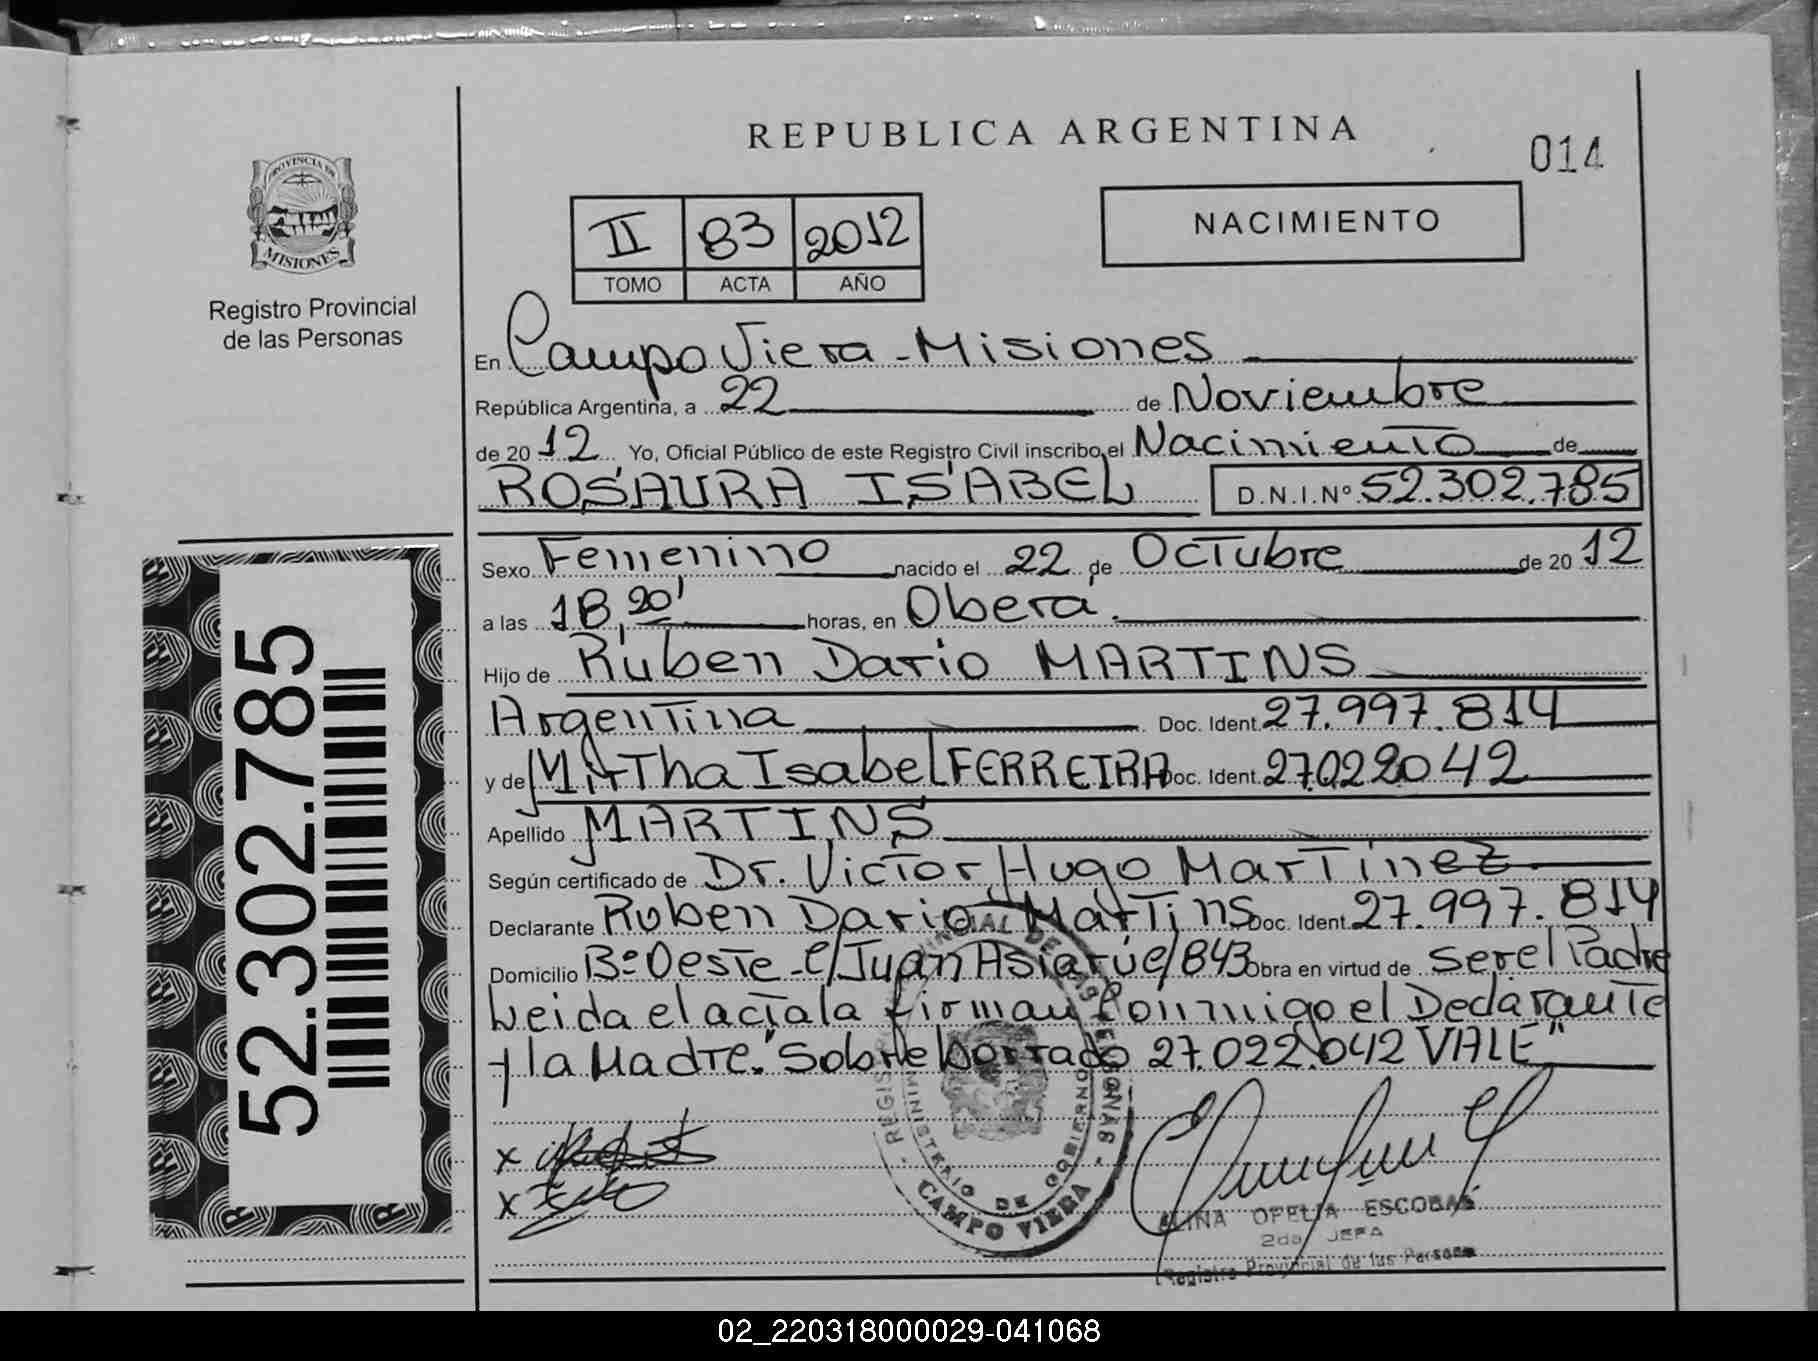 REPUBLICA ARGENTINA
014
PROVINCIA DE
MISIONES
Registro Provincial
de las Personas
II 83 2012
TOMO ACTA AÑO
NACIMIENTO
En Campo Viera - Misiones
República Argentina, a 22 de Noviembre
de 2012 Yo, Oficial Público de este Registro Civil inscribo el Nacimiento de
ROSAURA ISABEL D.N.I.Nº 52.302.785
Sexo Femenino nacido el 22 de Octubre de 2012
a las 18,20' horas, en Oberá.
Hijo de Ruben Dario MARTINS
Argentina Doc. Ident. 27.997.814
y de Mirtha Isabel FERREIRA Doc. Ident. 27.022.042
Apellido MARTINS
Según certificado de Dr. Victor Hugo Martinez
Declarante Ruben Dario Martins Doc. Ident. 27.997.814
Domicilio Bº Oeste - C/Juan Asiarúe/843 Obra en virtud de ser el Padre
Leida el acta la firman conmigo el Declarante
y la Madre. "Sobre borrado 27.022.042 VALE"
x
x
MINISTERIO DE GOBIERNO
CAMPO VIERA
ALINA OFELIA ESCOBAR
2da JEFA
Registro Provincial de las Personas
52.302.785
02_220318000029-041068